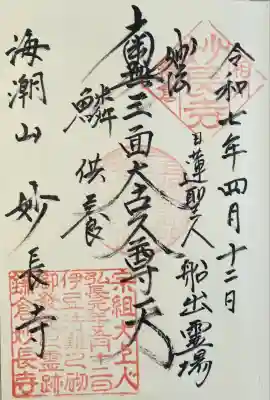 令和七年四月十二日
日蓮聖人船出霊場
妙法
奥三面大古久尊天
鱗供養
海潮山 妙長寺
妙長寺
宗祖大上人
弘長元年五月十二日
伊豆法難之砌
御船出霊跡
鎌倉妙長寺